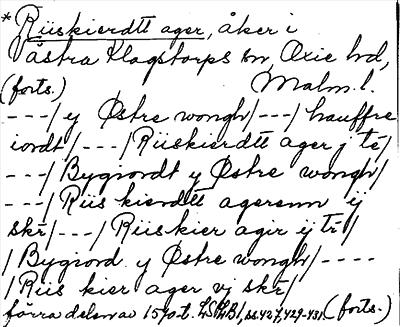 * Riiskierdtt ager, åker i
Västra Klagstorps sn, Oxie hd,
(forts.) Malm. l.
---/ y Østre wongh/---/ hauffre
iordt/---/ Riiskierdtt ager j tē/
---/ Bygiordt y Østre wongh/
---/ Riis kierdtt agerenn ÿ
skr̄/---/ Riiskier agir ÿ tr̄/
/ Bygiord y Østre wongh/----
/ Riis kier ager vj skr̄/
förra delen av 1570-t. LSHB1, ss. 427, 429-431. (forts.)